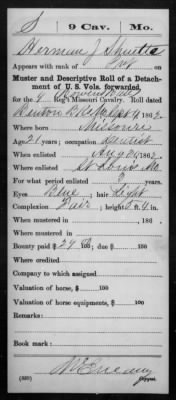 S | 9 Cav. | Mo.
Herman J
Appears with rank of Pvt
Muster and Descriptive Roll of a Detach-
ment of U. S. Vols. forwarded,
for the 9 Reg't Missouri Cavalry. Roll dated
Benton B 186 2.
Where born Missouri
Age 21 years; occupation Dentist
When enlisted Aug 20, 186 2.
Where enlisted St Louis Mo.
For what period enlisted 3 years.
Eyes Blue; hair Light
Complexion Fair; height 5 ft. 4 in.
When mustered in , 186 .
Where mustered in
Bounty paid $ 29 100; due $ 100
Where credited
Company to which assigned
Valuation of horse, $ 100
Valuation of horse equipments, $ 100
Remarks:
Book mark:
Copyist.